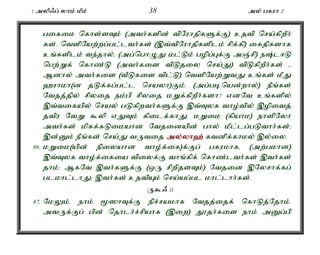 1 அலிஃப் லாம் மீம் 38 அல் பகரா 2
பகைமை கொள்ளவும் (அவர்களின் விரோதிகளுக்கு) உதவி செய்கிறீர்
கள். வெளியேற்றப்பட்டவர்கள் (இவ்விரோதிகளிடம் சிக்கி) கைதிகளாக
உங்களிடம் வந்தால், (அப்பொழுது மட்டும் பழிப்புக்கு அஞ்சி) நஷ்டஈடு
பெற்றுக் கொண்டு (அவர்களை விடுதலை செய்து) விடுகிறீர்கள்.
ஆனால் அவர்களை (வீடுகளை விட்டு) வெளியேற்றுவது உங்கள் மீது
ஹராமா(ன தடுக்கப்பட்ட செயலா)கும். (அப்படியென்றால்) நீங்கள்
வேதத்தில் சிலதை நம்பி சிலதை மறுக்கிறீர்களா? எனவே உங்களில்
இவ்வகையில் செயல் படுகிறவர்களுக்கு இவ்வுலக வாழ்வில் இழிவைத்
தவிர வேறு கூலி எதுவும் கிடைக்காது. மறுமை (கியாம) நாளிலோ
அவர்கள் மிகக்கடுமையான வேதனையின் பால் மீட்டப்படுவார்கள்;
இன்னும் நீங்கள் செய்து வருவதை அல்லாஹ் கவனிக்காமல் இல்லை.
86. மறுமை(யின் நிலையான வாழ்க்கை)க்குப் பகரமாக, (அற்பமான)
இவ்வுலக வாழ்க்கையை விலைக்கு வாங்கிக் கொண்டவர்கள் இவர்கள்
தாம்; ஆகவே இவர்களுக்கு (ஒரு சிறிதளவும்) வேதனை இலேசாக்கப்
படமாட்டாது; இவர்கள் உதவியும் செய்யப்பட மாட்டார்கள்.
87. மேலும், நாம் மூஸாவுக்கு நிச்சயமாக வேதத்தைக் கொடுத்தோம்.
அவருக்குப் பின் தொடர்ச்சியாக (இறை) தூதர்களை நாம் அனுப்பி